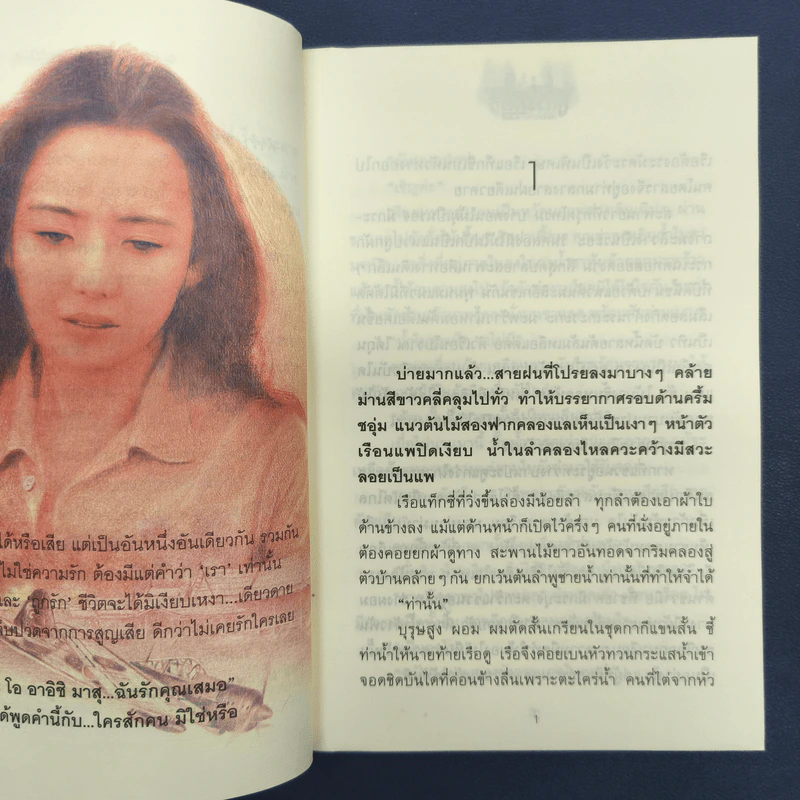 ได้หรือเสีย แต่เป็นอันหนึ่งอันเดียวกัน รวมกัน
ไม่ใช่ความรัก ต้องมีแต่คำว่า ‘เรา’ เท่านั้น
และ ‘ถูกรัก’ ชีวิตจะได้มิเงียบเหงา...เดียวดาย
จ็บปวดจากการสูญเสีย ดีกว่าไม่เคยรักใครเลย
โอ อาอิชิ มาสุ...ฉันรักคุณเสมอ”
ด้พูดคำนี้กับ...ใครสักคน มิใช่หรือ
1
บ่ายมากแล้ว...สายฝนที่โปรยลงมาบางๆ คล้าย
ม่านสีขาวคลี่คลุมไปทั่ว ทำให้บรรยากาศรอบด้านครึ้ม
ชอุ่ม แนวต้นไม้สองฟากคลองแลเห็นเป็นเงาๆ หน้าตัว
เรือนแพปิดเงียบ น้ำในลำคลองไหลควะคว้างมีสวะ
ลอยเป็นแพ
เรือแท็กซี่ที่วิ่งขึ้นล่องมีน้อยลำ ทุกลำต้องเอาผ้าใบ
ด้านข้างลง แม้แต่ด้านหน้าก็เปิดไว้ครึ่งๆ คนที่นั่งอยู่ภายใน
ต้องคอยยกผ้าดูทาง สะพานไม้ยาวอันทอดจากริมคลองสู่
ตัวบ้านคล้ายๆ กัน ยกเว้นต้นลำพูชายน้ำเท่านั้นที่ทำให้จำได้
“ท่านั้น”
บุรุษสูง ผอม ผมตัดสั้นเกรียนในชุดกากีแขนสั้น ชี้
ท่าน้ำให้นายท้ายเรือดู เรือจึงค่อยเบนหัวทวนกระแสน้ำเข้า
จอดชิดบันไดที่ค่อนข้างลื่นเพราะตะไคร่น้ำ คนที่ไต่จากหัว
1